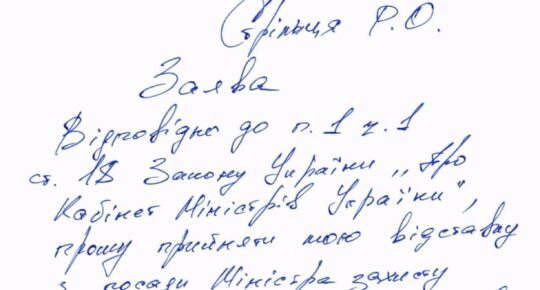 Стрільця Р.О.
Заява
Відповідно до п.1 ч.1
ст. 18 Закону України „Про
Кабінет Міністрів України",
прошу прийняти мою відставку
з посади Міністра захисту